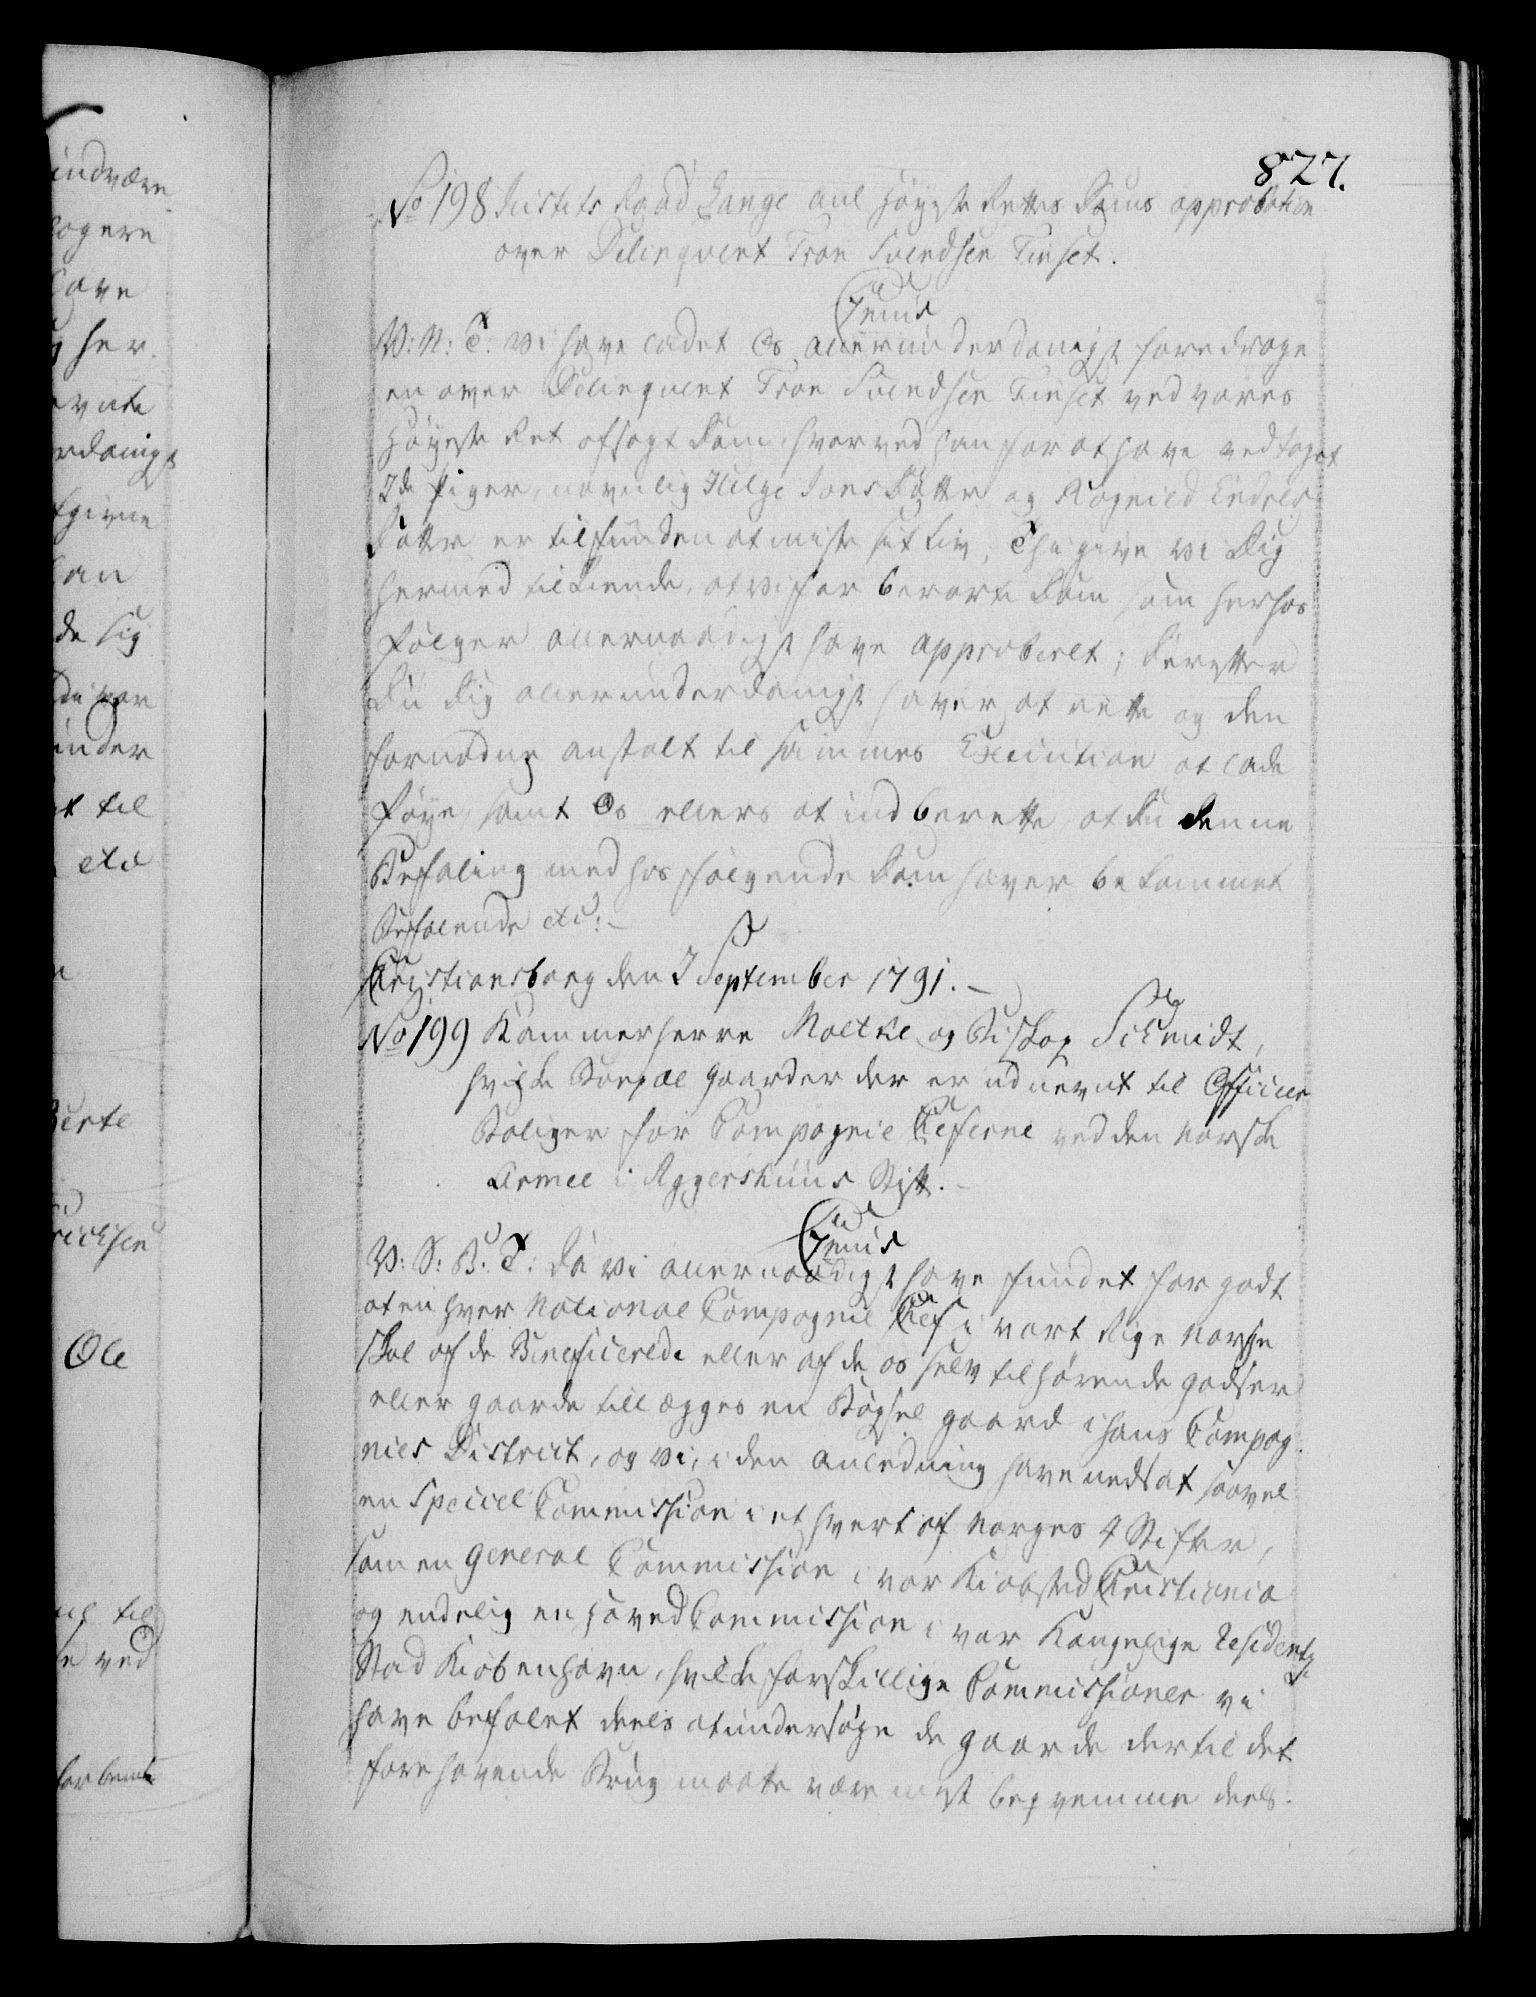 827.
No 198 Justits Raad Lange anl Høyeste Rettes Doms approbation
over Delinqvent Tron Svendsen Tinset.
C7mus
V: N: T: Vi have ladet Os allerunderdanigst foredrage
en over Delinqvent Tron Svendsen Tinset ved vores
Høyeste Ret afsagt Dom, hvorved han for at have
2de Piger, navnlig Helge Jons Dotter og Ragnild Endres
Dotter er tilfunden at miste sit Liv, Thi give vi Dig
hermed tilkiende, at vi for berørte Dom som herhos
følger allernaadigst have approberet; Derefter
Du Dig allerunderdanigst haver at rette og den
fornødne anstalt til sammes Execution at lade
føye, samt Os ellers at indberette, at du denne
Befaling med hosfølgende Dom haver bekommet
Befalende etc:
Christiansborg den 2 September 1791.
No 199 Kammerherre Moltke og Biskop Schmidt,
hvilke Bøxel Gaarder der er udnevnt til Officeer
Boliger for Compagnie Cheferne ved den norske
Armee i Aggershuus Stift.
C7mus
V: S: B: T: Da vi allernaadigst have fundet for godt
at en hver National Compagnie Chef i vort Rige Norge
skal af de Beneficerede eller af de os selv tilhørende godser
eller gaarde tillægges en Bøgsel gaard i hans Compag
nies District, og vi, i den anledning have nedsat saavel
en Speciel Commission i et hvert af Norges 4 Stifter,
som en General Commission i vor Kiøbsted Christiania
og endelig en Hoved Commission i vor Kongelige Residentz
Stad Kiøbenhavn, hvilke forskillige Commissioner vi
have befalet deels at undersøge de gaarde der til det
forehavende Brug maatte være mest beqvemme deels